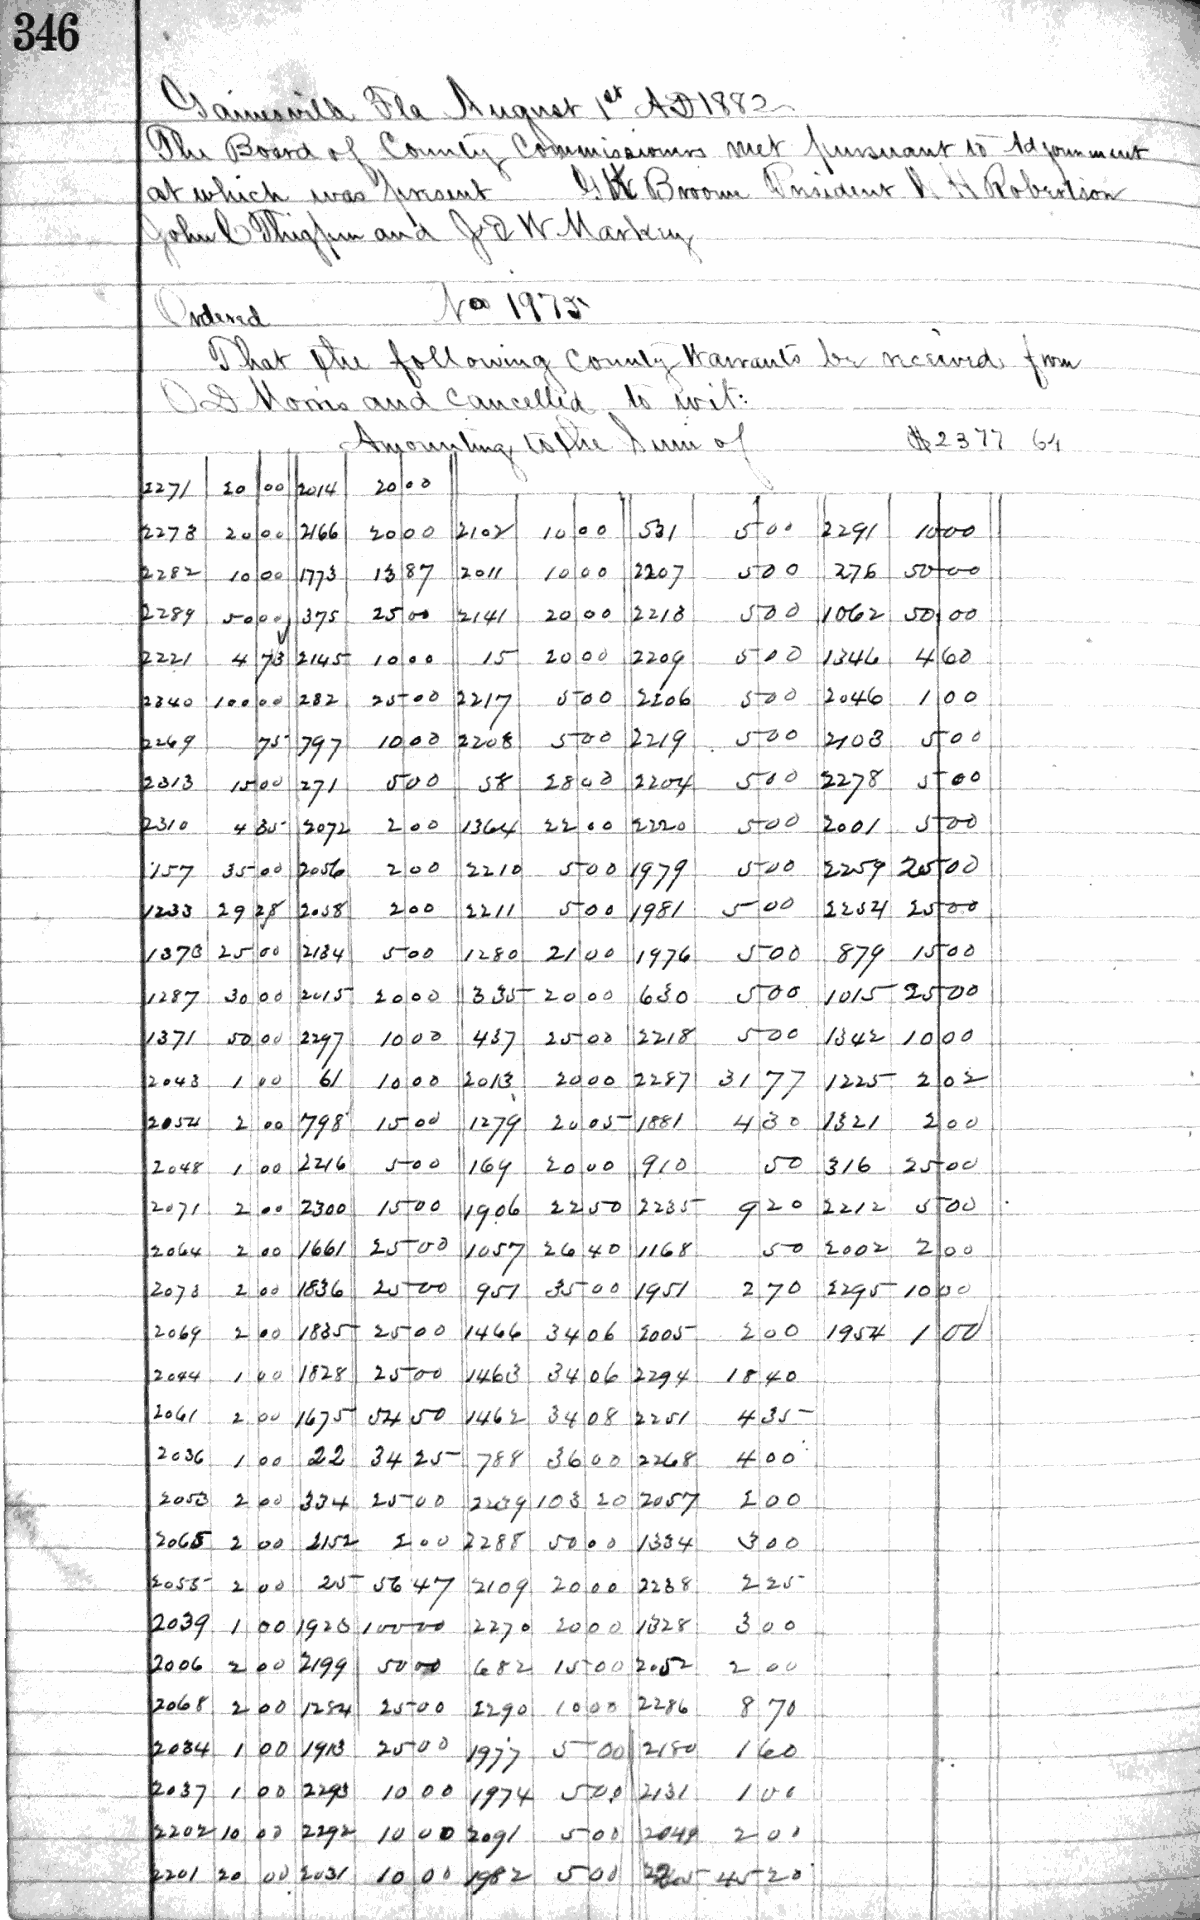 346
Gainesville Fla August 1st AD 1882
The Board of County Commissioners met pursuant to Adjournment
at which was present G K Broome President R H Robertson
John C Thigpin and J D W Markey
Ordered No 1975
That the following County Warrants be received from
O D Morris and Cancelled to wit:
Amounting to the Sum of $2377 64
2271 20 00 2014 20 00
2273 20 00 2166 20 00 2102 10 00 531 5 00 2291 10 00
2282 10 00 1773 13 87 2011 10 00 2207 5 00 276 50 00
2289 50 00 375 25 00 2141 20 00 2213 5 00 1062 50 00
2221 4 73 2145 10 00 15 20 00 2209 5 00 1346 4 60
2340 100 00 282 25 00 2217 5 00 2206 5 00 2046 1 00
2269 75 797 10 00 2208 5 00 2219 5 00 2103 5 00
2313 15 00 271 5 00 58 28 00 2204 5 00 2278 5 00
2310 4 35 2072 2 00 1364 22 00 2220 5 00 2001 5 00
157 35 00 2056 2 00 2210 5 00 1979 5 00 2259 25 00
1233 29 28 2058 2 00 2211 5 00 1981 5 00 2254 25 00
1373 25 00 2134 5 00 1280 21 00 1976 5 00 879 15 00
1287 30 00 2015 20 00 335 20 00 630 5 00 1015 25 00
1371 50 00 2297 10 00 437 25 00 2218 5 00 1342 10 00
2043 1 00 61 10 00 2013 20 00 2287 31 77 1225 2 02
2054 2 00 798 15 00 1279 20 05 1881 4 30 1321 2 00
2048 1 00 2216 5 00 169 20 00 910 50 316 25 00
2071 2 00 2300 15 00 1906 22 50 2235 9 20 2212 5 00
2064 2 00 1661 25 00 1057 26 40 1168 50 2002 2 00
2073 2 00 1836 25 00 951 35 00 1951 2 70 2295 10 00
2069 2 00 1835 25 00 1466 34 06 2005 2 00 1954 1 00
2044 1 00 1828 25 00 1463 34 06 2294 18 40
2061 2 00 1675 54 50 1462 34 08 2251 4 35
2036 1 00 22 34 25 788 36 00 2268 4 00
2053 2 00 334 25 00 2239 103 20 2057 2 00
2065 2 00 2152 2 00 2288 50 00 1334 3 00
2055 2 00 25 56 47 2109 20 00 2238 2 25
2039 1 00 1923 100 00 2270 20 00 1328 3 00
2006 2 00 2199 50 00 682 15 00 2052 2 00
2068 2 00 1284 25 00 2290 10 00 2286 8 70
2034 1 00 1913 25 00 1977 5 00 2180 1 60
2037 1 00 2293 10 00 1974 5 00 2131 1 00
2202 10 00 2292 10 00 2091 5 00 2049 2 00
2201 20 00 2031 10 00 1982 5 00 45 20